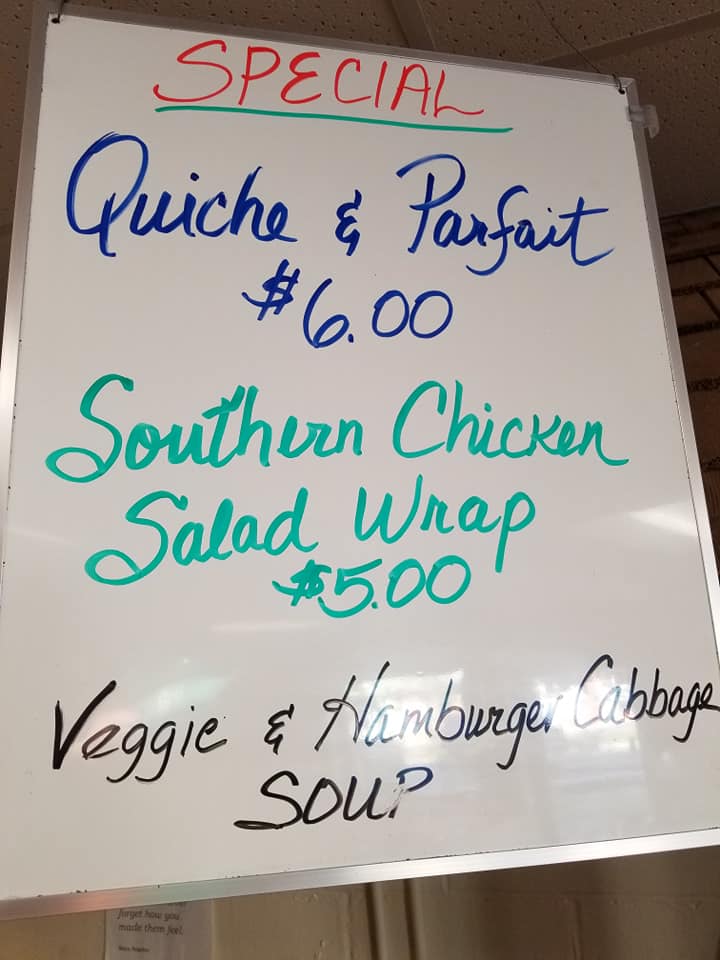 SPECIAL
Quiche & Parfait
$6.00
Southern Chicken
Salad Wrap
$5.00
Veggie & Hamburger Cabbage
SOUP
forget how you
made them feel.